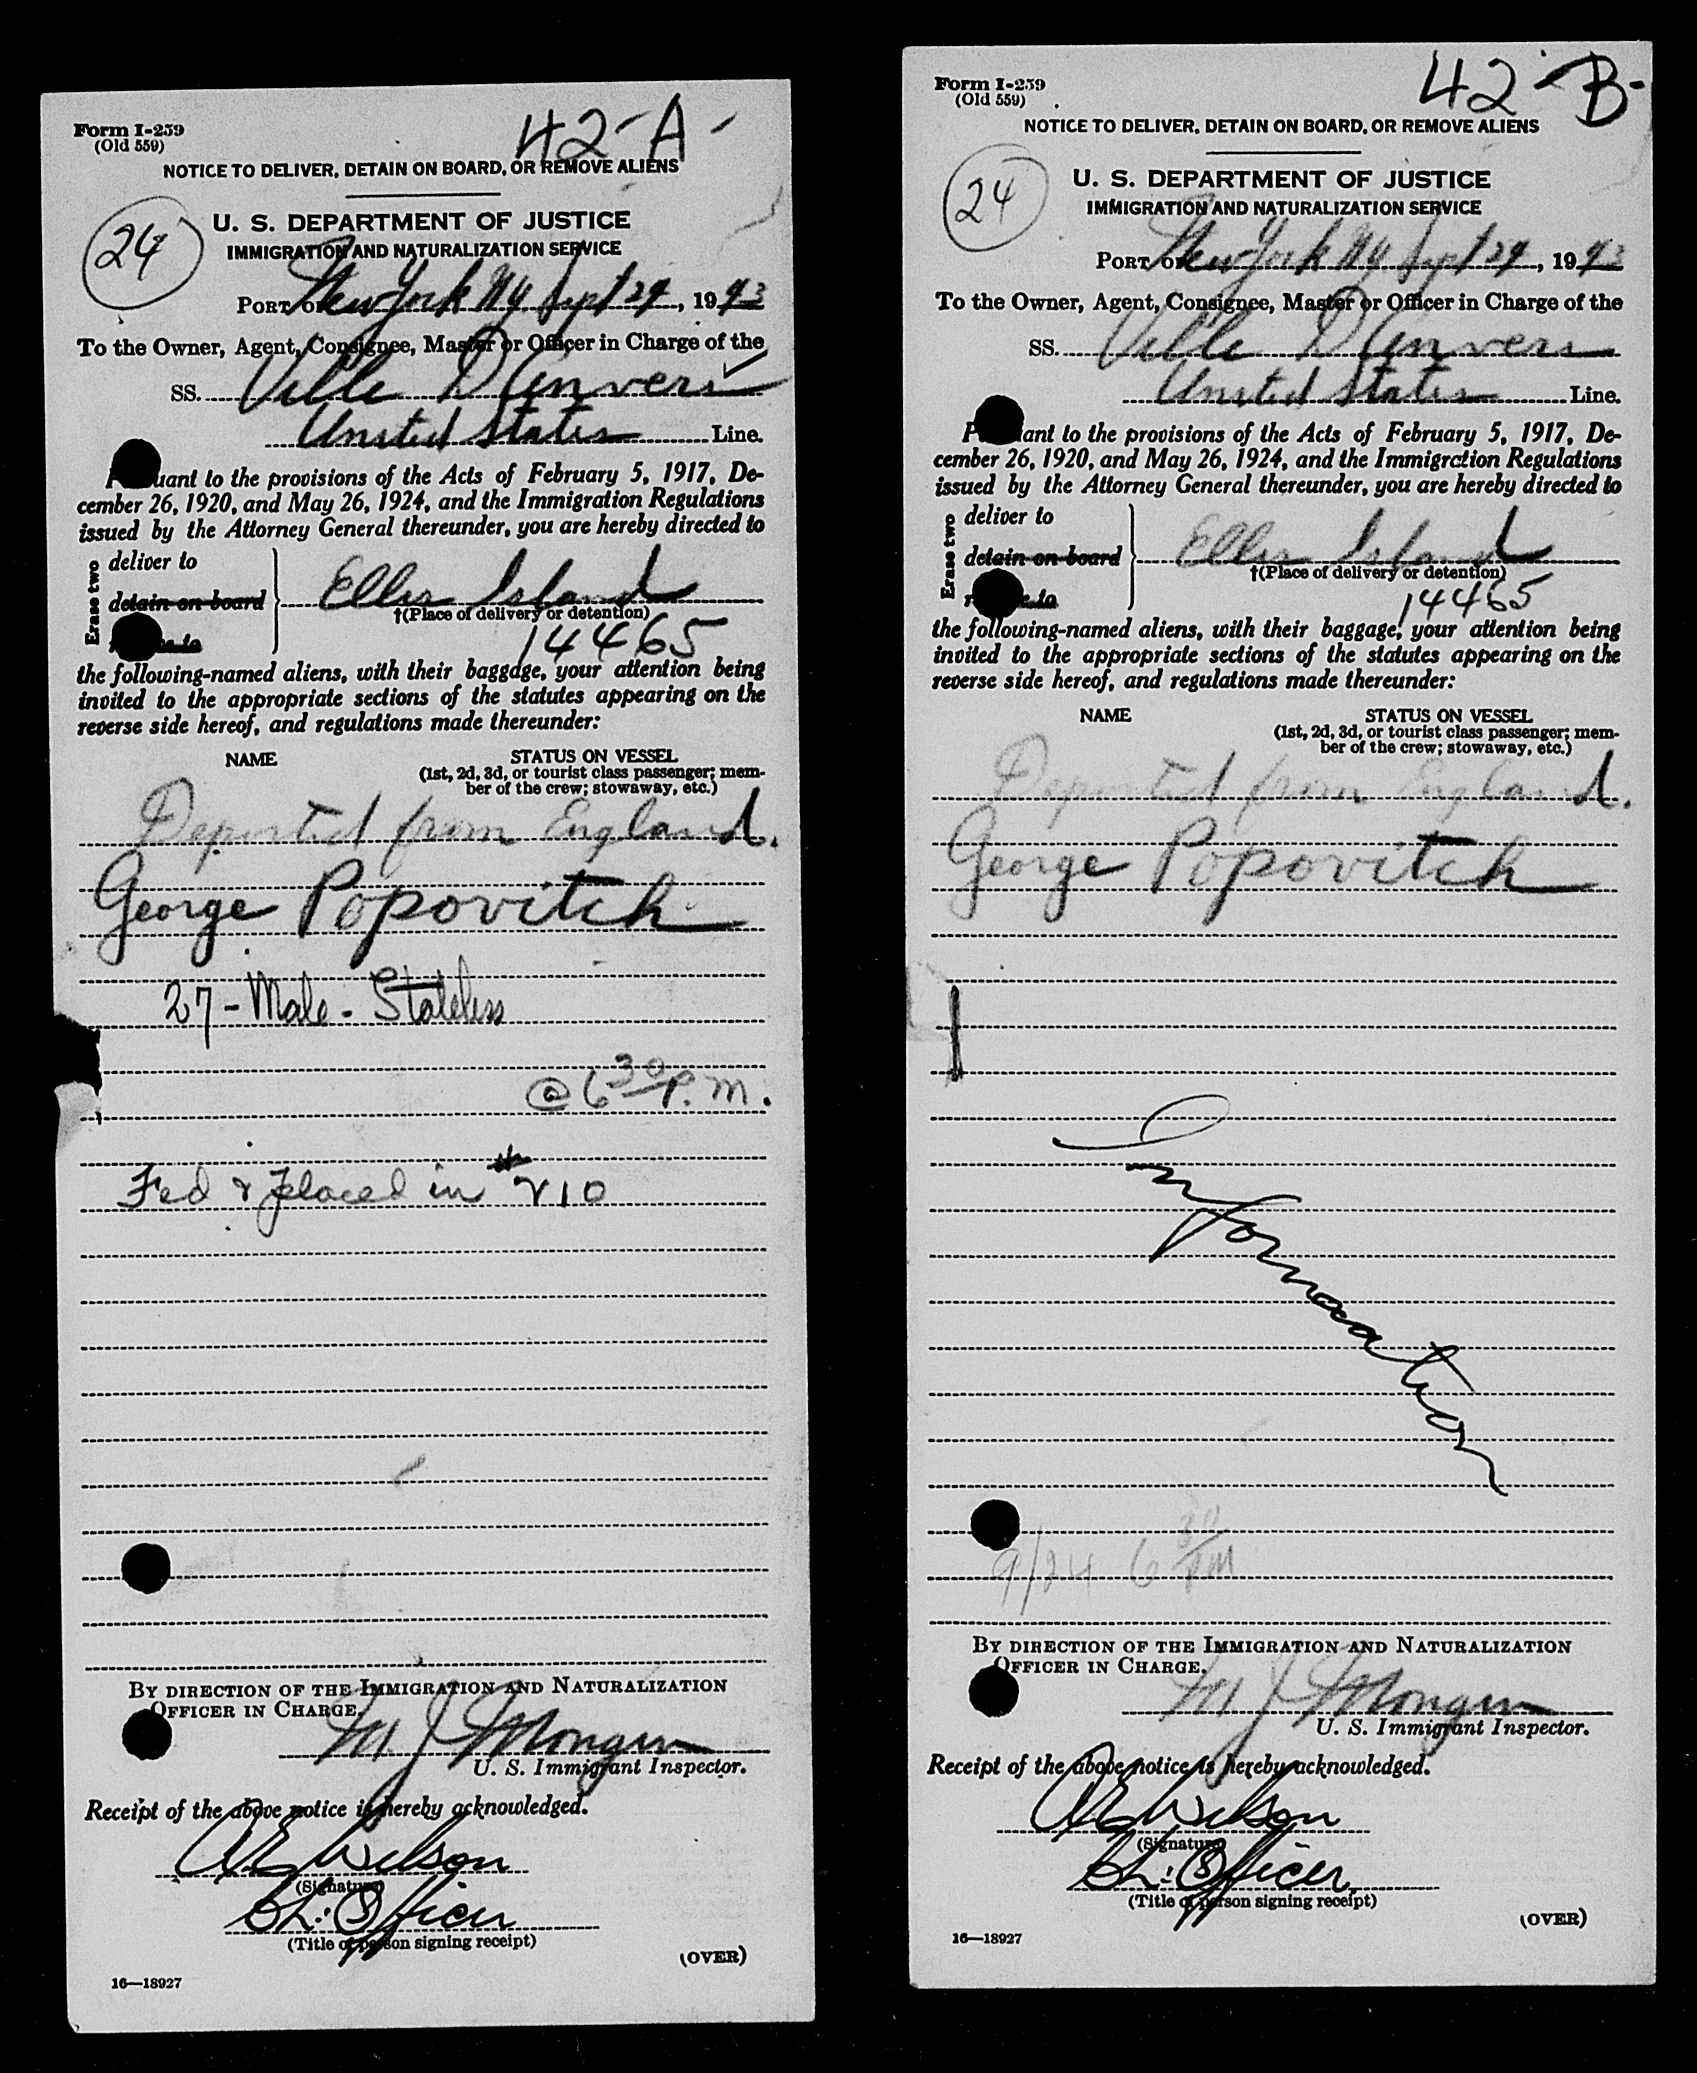 42-A-
Form I-259
(Old 559)
NOTICE TO DELIVER, DETAIN ON BOARD, OR REMOVE ALIENS
24
U. S. DEPARTMENT OF JUSTICE
IMMIGRATION AND NATURALIZATION SERVICE
PORT OF New York NY Sept 24, 1943
To the Owner, Agent, Consignee, Master or Officer in Charge of the
SS. Ville D Anvers
United States Line.
Pursuant to the provisions of the Acts of February 5, 1917, De-
cember 26, 1920, and May 26, 1924, and the Immigration Regulations
issued by the Attorney General thereunder, you are hereby directed to
Erase two
deliver to
detain on board Ellis Island
†(Place of delivery or detention)
14465
the following-named aliens, with their baggage, your attention being
invited to the appropriate sections of the statutes appearing on the
reverse side hereof, and regulations made thereunder:
NAME STATUS ON VESSEL
(1st, 2d, 3d, or tourist class passenger; mem-
ber of the crew; stowaway, etc.)
Deported from England.
George Popovitch
27 - Male - Stateless
@ 6 30 P.M.
Fed & placed in # 210
BY DIRECTION OF THE IMMIGRATION AND NATURALIZATION
OFFICER IN CHARGE.
M J
U. S. Immigrant Inspector.
Receipt of the above notice is hereby acknowledged.
Wilson
(Signature)
Ch: Officer
(Title of person signing receipt)
(OVER)
16—18927
42-B-
Form I-259
(Old 559)
NOTICE TO DELIVER, DETAIN ON BOARD, OR REMOVE ALIENS
24
U. S. DEPARTMENT OF JUSTICE
IMMIGRATION AND NATURALIZATION SERVICE
PORT OF New York NY Sept 24, 1943
To the Owner, Agent, Consignee, Master or Officer in Charge of the
SS. Ville D Anvers
United States Line.
Pursuant to the provisions of the Acts of February 5, 1917, De-
cember 26, 1920, and May 26, 1924, and the Immigration Regulations
issued by the Attorney General thereunder, you are hereby directed to
Erase two
deliver to
detain on board Ellis Island
†(Place of delivery or detention)
14465
the following-named aliens, with their baggage, your attention being
invited to the appropriate sections of the statutes appearing on the
reverse side hereof, and regulations made thereunder:
NAME STATUS ON VESSEL
(1st, 2d, 3d, or tourist class passenger; mem-
ber of the crew; stowaway, etc.)
Deported from England.
George Popovitch
Information
9/24 6 30 PM
BY DIRECTION OF THE IMMIGRATION AND NATURALIZATION
OFFICER IN CHARGE.
M J
U. S. Immigrant Inspector.
Receipt of the above notice is hereby acknowledged.
Wilson
(Signature)
Ch: Officer
(Title of person signing receipt)
(OVER)
16—18927